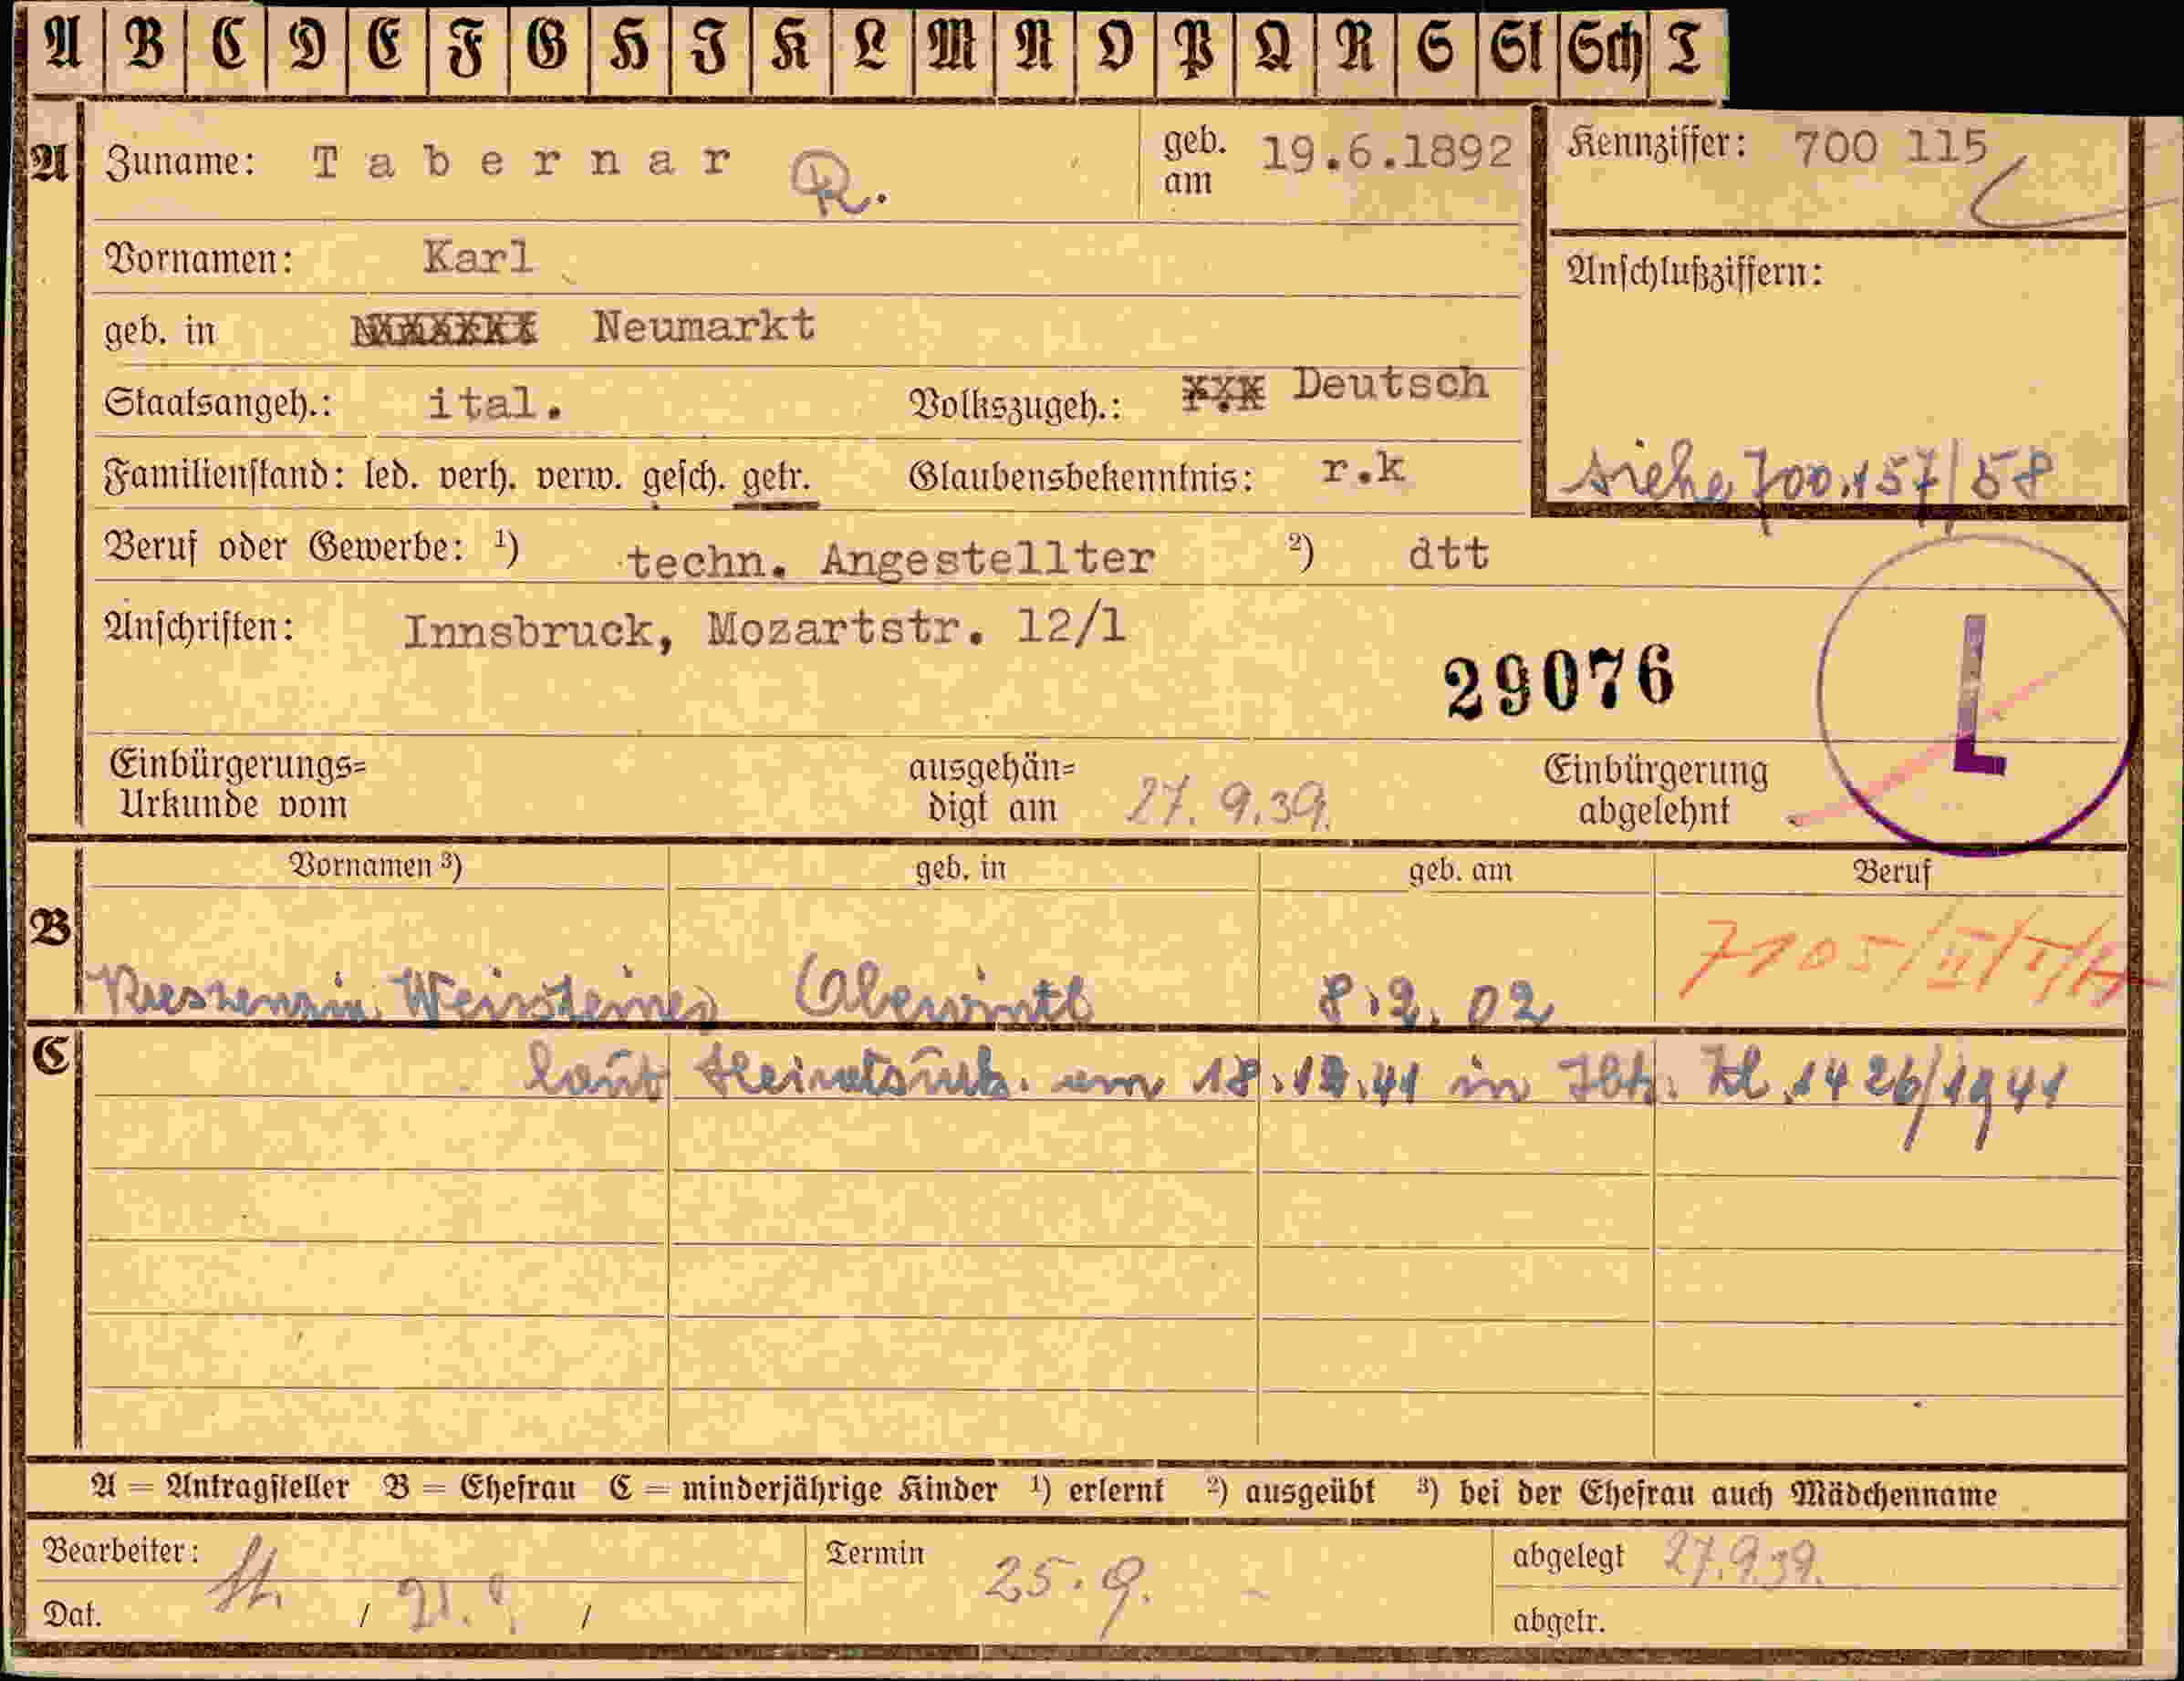 A B C D E F G H J K L M N O P Q R S St Sch T
A Zuname: Tabernar R. geb. am 19.6.1892 Kennziffer: 700 115
Vornamen: Karl
Anschlußziffern:
geb. in Neumarkt
Staatsangeh.: ital. Volkszugeh.: Deutsch
Familienstand: led. verh. verw. gesch. getr. Glaubensbekenntnis: r.k
siehe 700.157/58
Beruf oder Gewerbe: ¹) techn. Angestellter ²) dtt
Anschriften: Innsbruck, Mozartstr. 12/1
29076
L
Einbürgerungs= ausgehän= Einbürgerung
Urkunde vom digt am 27.9.39. abgelehnt
Vornamen ³) geb. in geb. am Beruf
B
7105/II/I/
Weissteiner 8.2.02
C laut Heiratsurk. am in Ibk. Zl. 1426/1941
A = Antragsteller B = Ehefrau C = minderjährige Kinder ¹) erlernt ²) ausgeübt ³) bei der Ehefrau auch Mädchenname
Bearbeiter: Termin 25.9. abgelegt 27.9.39.
Dat. / 21.9. / abgetr.